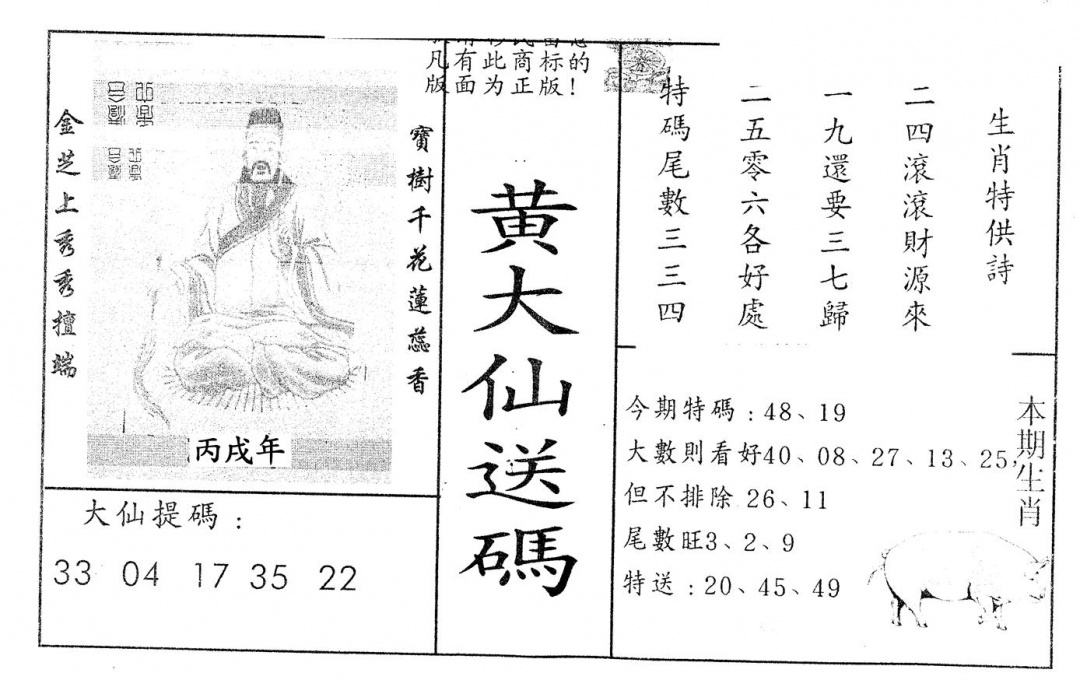 凡有此商标的
版面为正版!
黄大仙送碼
金芝上秀秀擅端
寶樹千花蓮蕊香
丙戌年
大仙提碼:
33 04 17 35 22
生肖特供詩
二四滾滾財源來
一九還要三七歸
二五零六各好處
特碼尾數三三四
今期特碼:48、19
大數則看好40、08、27、13、25,
但不排除 26、11
尾數旺3、2、9
特送:20、45、49
本期生肖